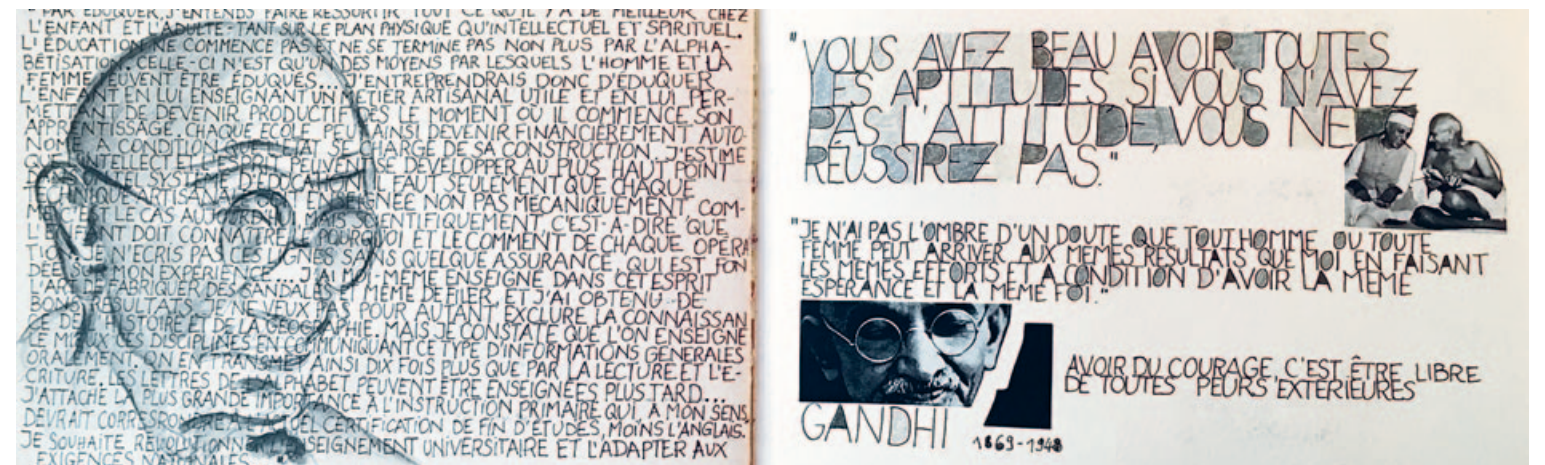 "PAR ÉDUQUER, J'ENTENDS FAIRE RESSORTIR TOUT CE QU'IL Y A DE MEILLEUR CHEZ
L'ENFANT ET L'ADULTE - TANT SUR LE PLAN PHYSIQUE QU'INTELLECTUEL ET SPIRITUEL.
L'ÉDUCATION NE COMMENCE PAS ET NE SE TERMINE PAS NON PLUS PAR L'ALPHA-
BÉTISATION. CELLE-CI N'EST QU'UN DES MOYENS PAR LESQUELS L'HOMME ET LA
FEMME PEUVENT ÊTRE ÉDUQUÉS... J'ENTREPRENDRAIS DONC D'ÉDUQUER
L'ENFANT EN LUI ENSEIGNANT UN MÉTIER ARTISANAL UTILE ET EN LUI PER-
METTANT DE DEVENIR PRODUCTIF DÈS LE MOMENT OÙ IL COMMENCE SON
APPRENTISSAGE. CHAQUE ECOLE PEUT AINSI DEVENIR FINANCIÈREMENT AUTO-
NOME À CONDITION ÉTAT SE CHARGE DE SA CONSTRUCTION. J'ESTIME
QUE INTELLECT ET ESPRIT PEUVENT SE DEVELOPPER AU PLUS HAUT POINT
TEL SYSTÈME D'ÉDUCATION. IL FAUT SEULEMENT QUE CHAQUE
TECHNIQUE ARTISANALE SOIT ENSEIGNÉE NON PAS MÉCANIQUEMENT COM-
ME C'EST LE CAS AUJOURD'HUI MAIS SCIENTIFIQUEMENT C'EST-À-DIRE QUE
L'ENFANT DOIT CONNAÎTRE LE POURQUOI ET LE COMMENT DE CHAQUE OPÉRA-
TION. JE N'ECRIS PAS CES LIGNES SANS QUELQUE ASSURANCE, QUI EST FON
DÉE SUR MON EXPERIENCE. J'AI MOI-MÊME ENSEIGNÉ DANS CET ESPRIT
L'ART DE FABRIQUER DES SANDALES ET MÊME DE FILER, ET J'AI OBTENU DE
BONS RESULTATS. JE NE VEUX PAS POUR AUTANT EXCLURE LA CONNAISSAN
CE DE L'HISTOIRE ET DE LA GÉOGRAPHIE. MAIS JE CONSTATE QUE L'ON ENSEIGNE
LE MIEUX CES DISCIPLINES EN COMMUNIQUANT CE TYPE D'INFORMATIONS GÉNÉRALES
ORALEMENT. ON EN TRANSMET AINSI DIX FOIS PLUS QUE PAR LA LECTURE ET L'É-
CRITURE. LES LETTRES DE L'ALPHABET PEUVENT ÊTRE ENSEIGNÉES PLUS TARD...
J'ATTACHE LA PLUS GRANDE IMPORTANCE À L'INSTRUCTION PRIMAIRE QUI, À MON SENS,
DEVRAIT CORRESPONDRE CERTIFICATION DE FIN D'ÉTUDES, MOINS L'ANGLAIS.
JE SOUHAITE RÉVOLUTIONNER L'ENSEIGNEMENT UNIVERSITAIRE ET L'ADAPTER AUX
EXIGENCES NATIONALES.
"VOUS AVEZ BEAU AVOIR TOUTES
LES APTITUDES SI VOUS N'AVEZ
PAS L'ALTITUDE, VOUS NE
RÉUSSIREZ PAS."
"JE N'AI PAS L'OMBRE D'UN DOUTE QUE TOUT HOMME OU TOUTE
FEMME PEUT ARRIVER AUX MEMES RESULTATS QUE MOI EN FAISANT
LES MEMES EFFORTS ET A CONDITION D'AVOIR LA MEME
ESPERANCE ET LA MEME FOI."
AVOIR DU COURAGE, C'EST ÊTRE LIBRE
DE TOUTES PEURS EXTERIEURES
GANDHI 1869-1948